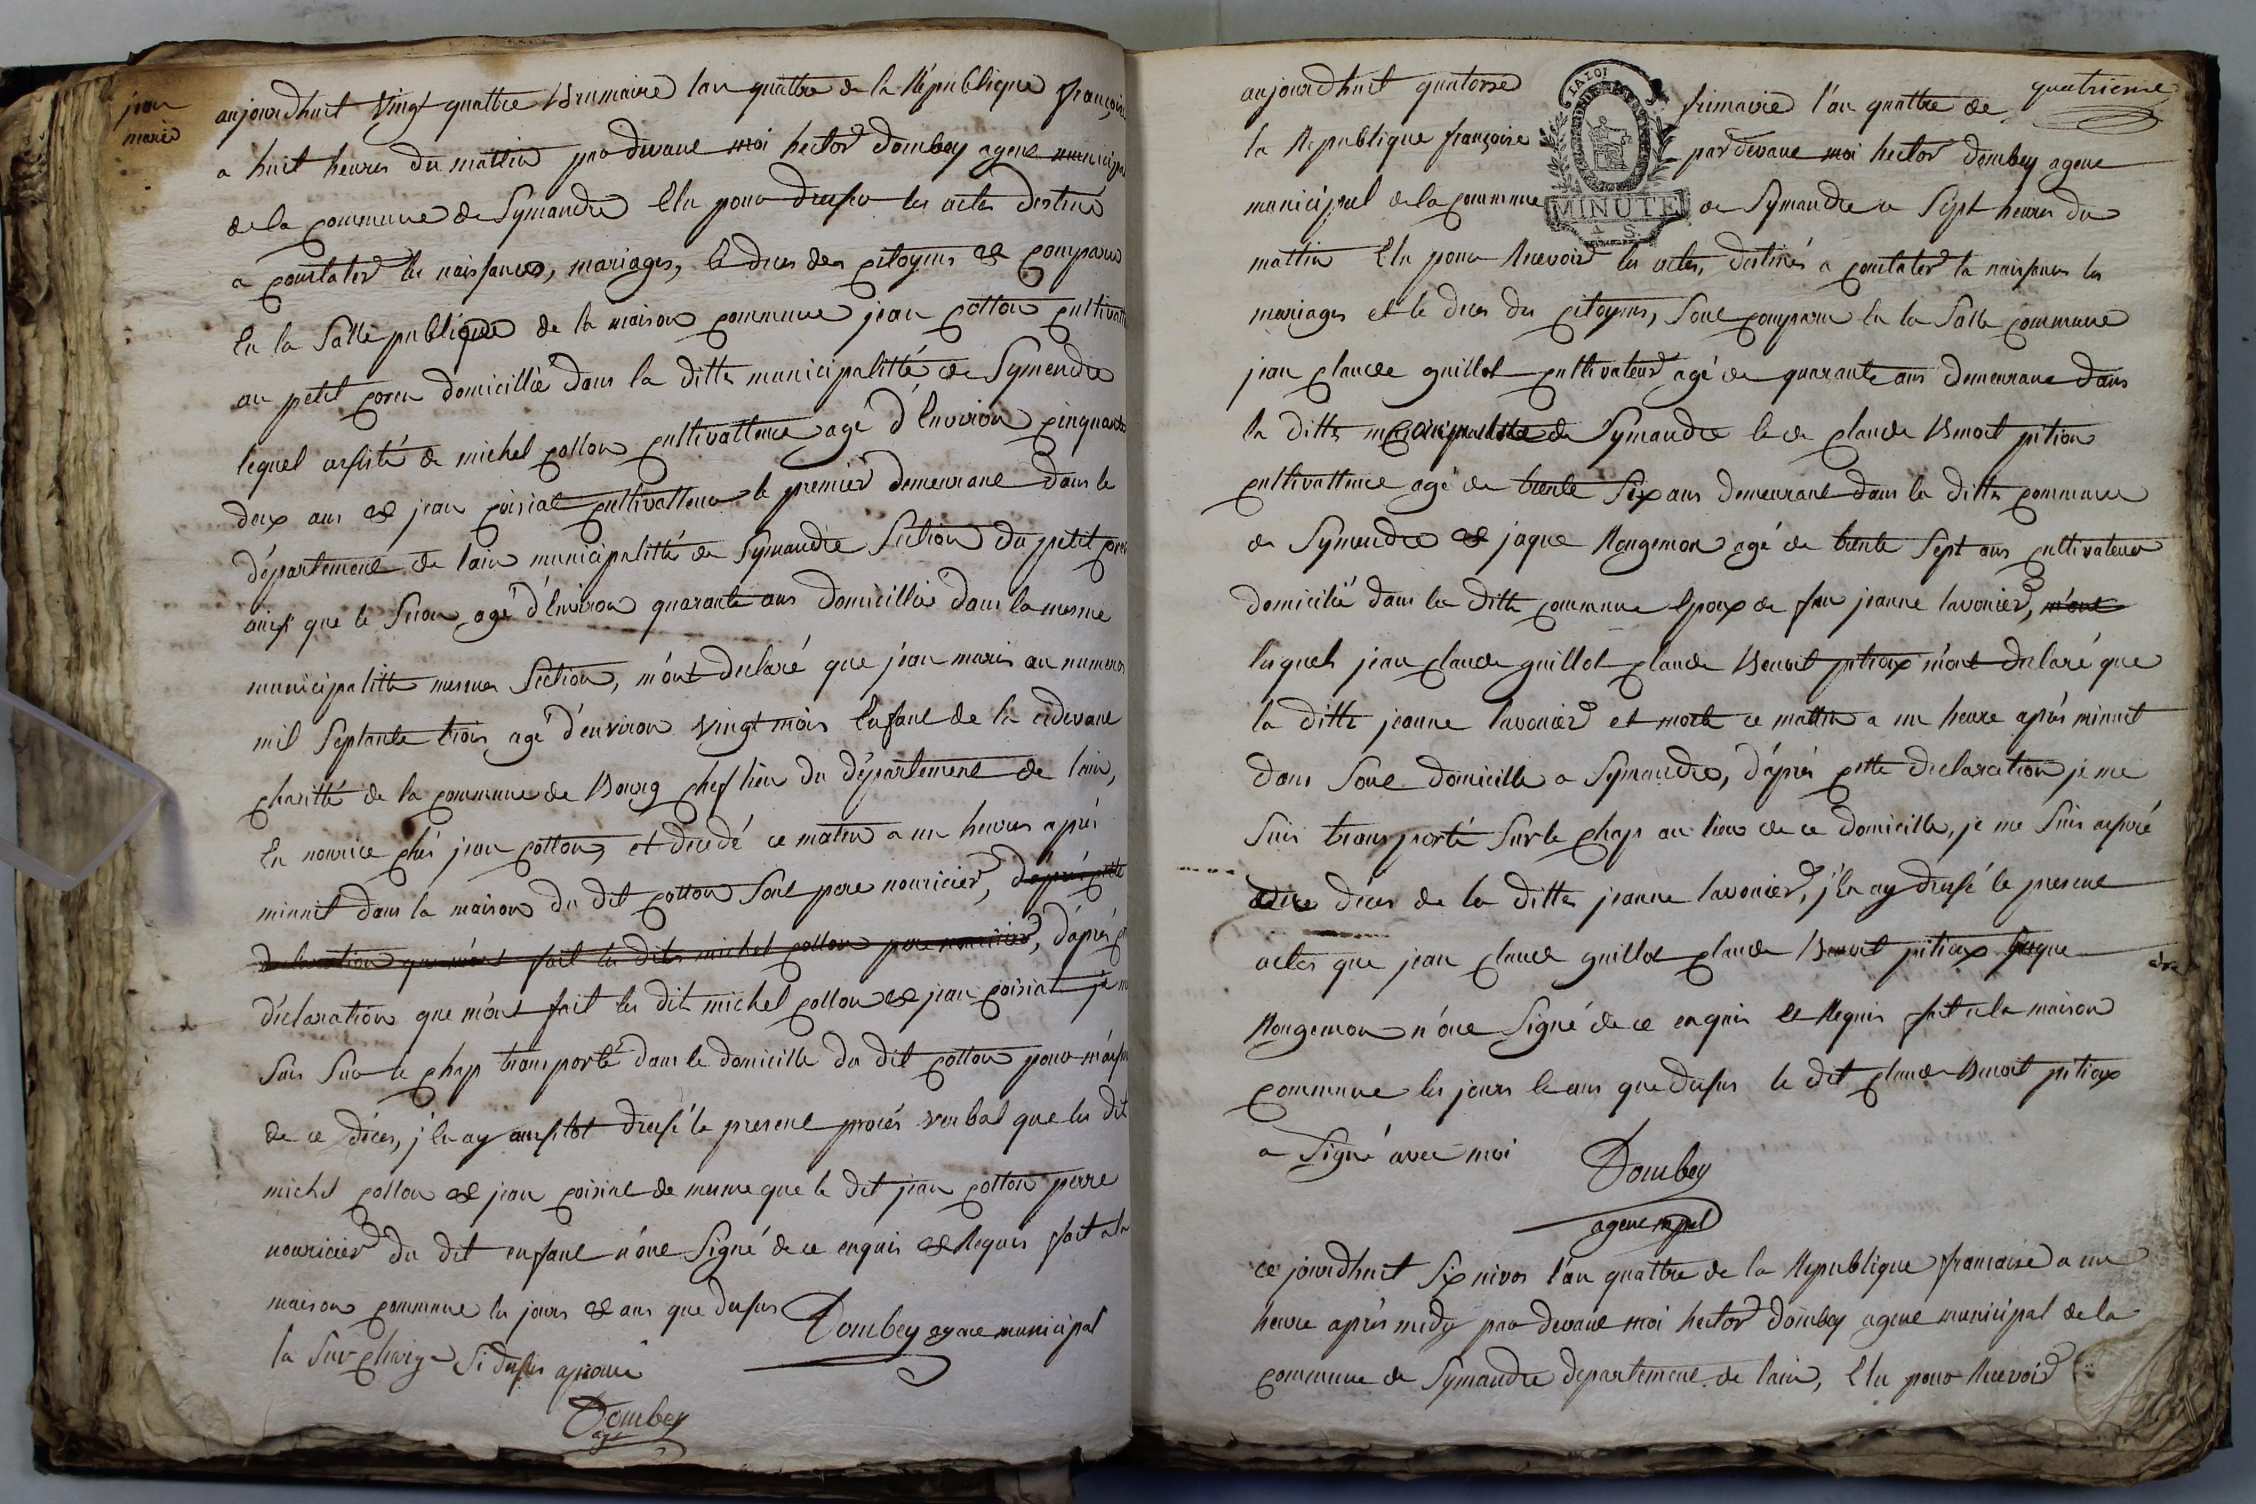 jean
marie
aujourdhuit vingt quattre Brumaire lan quattre de la République françoise
a huit heures du mattin par devant moi hector dombey agent municipal
de la commune de Symandre Elu pour dresser les actes destiné
a constater les naissances, mariages, le deces des citoyens et comparu
En la Salle publique de la maison commune jean cotton cultivat
au petit coren domicillié dans la ditte municipalitté de Symendre
lequel assisté de michel cotton cultivatteur agé d'Environ cinquante
deux ans et jean poisiat cultivatteur le premier demeurant dans le
département de lain municipalitté de Symandre Section du petit coren
ainsi que le Secon agé d'Environ quarante ans domicillié dans la mesme
municipalitté mesmes Section, m'ont déclaré que jean marie au numeros
mil Septante trois agé d'environ vingt mois Enfant de la cidevant
charitté de la commune de Bourg chef lieu du département de lain,
En nourice chés jean cotton, et décédé ce matin a un heures après
minuit dans la maison du dit cotton Sont pere nouricier, d'après cette
declaration que m'ont fait les dits michel cotton pere nouricier, d'après
déclaration que m'ont fait les dit michel cotton et jean poisiat je m
Suis Sur le chap transporté dans le domicille du dit cotton pour m'assu
de ce déces, j'En ay aussitot dressé le present procés verbal que les dit
michel cotton et jean poisiat de mesme que le dit jean cotton perre
nouricier du dit enfant n'ont Signé de ce enquis et Requis fait a la
maison commune les jours et ans que dessus
Dombey agent municipal
la Surcharge Si dessus aprouvé
Dombey
agt
quatrieme
LA LOI
MINUTE
4 S.
aujourdhuit quatorse frimaire l'an quattre de
la Republique françoise par devant moi hector dombey agent
municipal de la commune de Symandre a Sept heures du
mattin Elu pour Recevoir les actes, destinés a constater la naissances les
mariages et le deces des citoyens, Sont comparu En la Salle commune
jean claude guillot cultivateur agé de quarante ans demeurant dans
la ditte municipalité de Symandre le de claude Benoit pition
cultivatteur agé de trente Six ans demeurant dans la ditte commune
de Symendre et jaque Rongemon agé de trente Sept ans cultivateur
domicilié dans la ditte commune Epoux de feu jeanne lavonier, m'ont
lesquels jean claude guillot claude Benoit pitiox m'ont declaré que
la ditte jeanne lavonier et morte ce mattin a un heure après minuit
dans Sont domicille a Symandre, d'après cette declaration je me
Suis transporté Sur le chap au lieu de ce domicille, je me Suis assuré
du deces de la ditte jeanne lavonier, j'En ay dressé le present
actes que jean claude guillot claude Benoit pitiox jaque
Rongemon n'ont Signé de ce enquis et Requis fait a la maison
commune les jours et ans que dessus le dit claude Benoit pitiox
a Signé avec moi
Dombey
agent mpal
ce jourdhuit Six nivos l'an quattre de la Republique francaise a un
heure après midy par devant moi hector dombey agent municipal de la
commune de Symandre departement de lain, Elu pour Recevoir